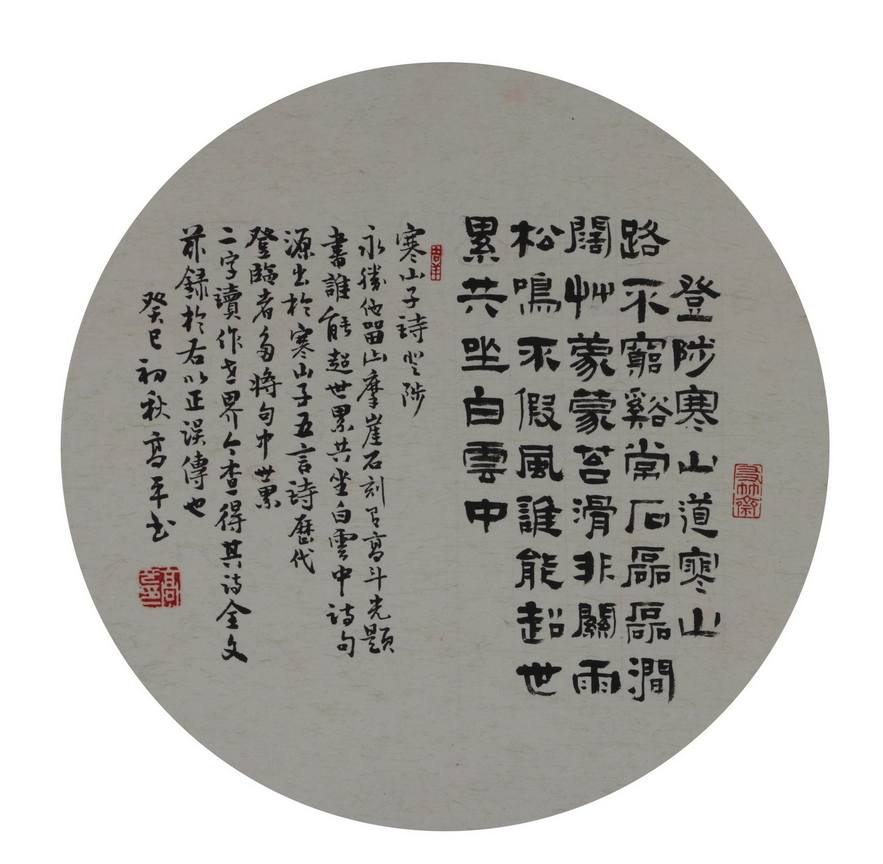 登陟寒山道寒山
路不窮谿常石磊磊澗
闊艸蒙蒙苔滑非關雨
松鳴不假風誰能超世
累共坐白雲中
寒山子詩登陟
永勝他留山摩崖石刻有高斗光題
書誰能超世累共坐白雲中詩句
源出於寒山子五言詩歷代
登臨者多將句中世累
二字讀作世界今查得其詩全文
茲録於右以正誤傳也
癸巳初秋高平书